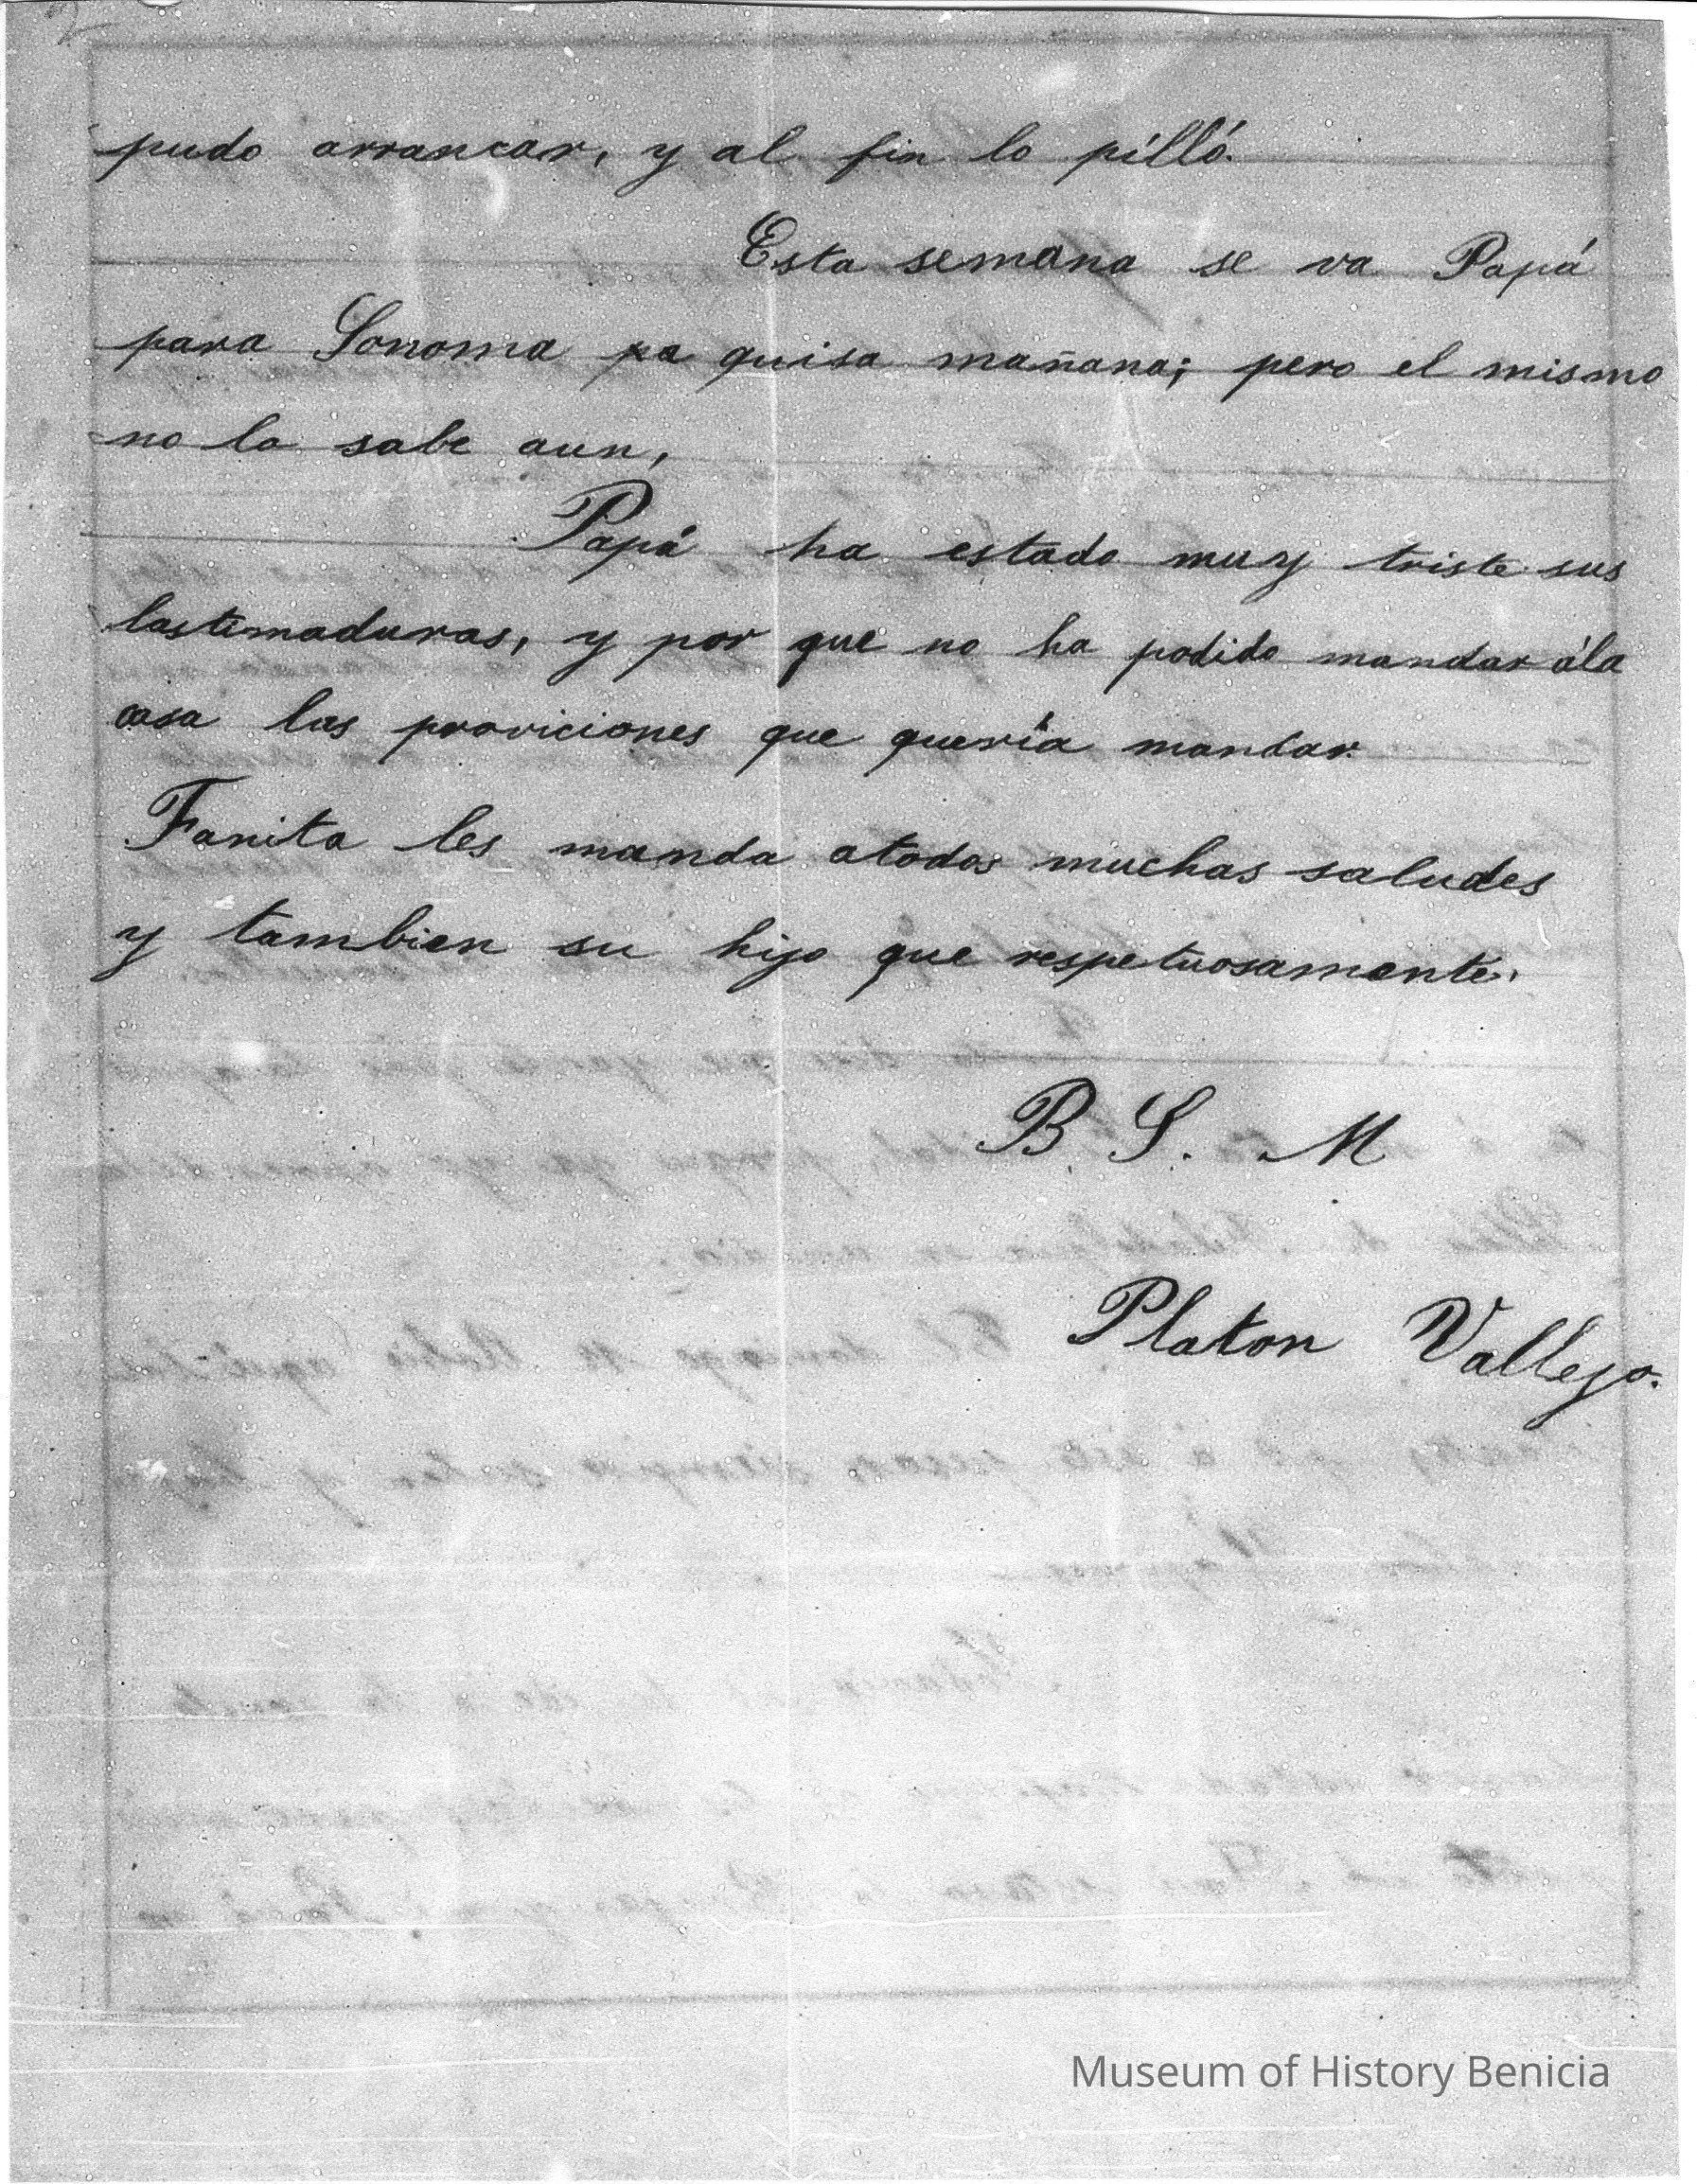 2
pudo arrancar, y al fin lo pilló.
Esta semana se va Papá
para Sonoma pa quisa mañana; pero el mismo
no lo sabe aun,
Papá ha estado muy triste sus
lastimaduras, y por que no ha podido mandar á la
casa las proviciones que quería mandar.
Fanita les manda atodos muchas saludes
y tambien su hijo que respetuosamente.
B. S. M
Platon Vallejo.
Museum of History Benicia